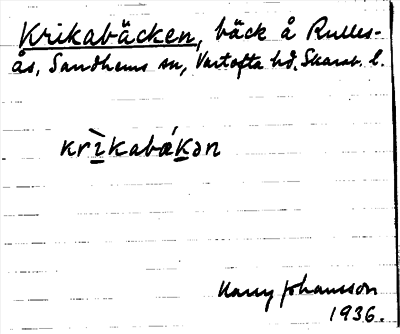 Krikabäcken, bäck å Rulles-
ås, Sandhems sn, Vartofta hd, Skarab. l.
krìkabákən
Harry Johansson
1936.